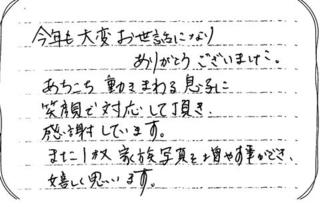 今年も大変お世話になり
ありがとうございました。
あちこち動きまわる息子に
笑顔で対応して頂き、
感謝しています。
また1枚家族写真を増やす事ができ、
嬉しく思います。